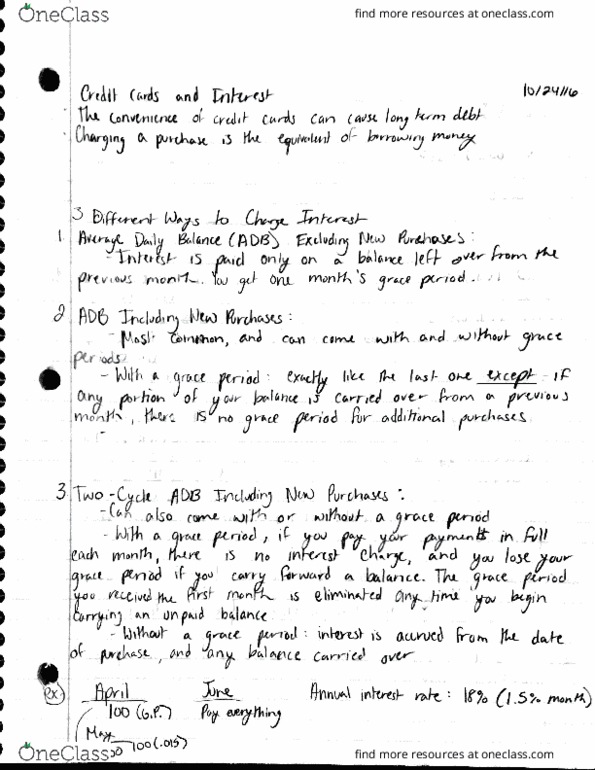 OneClass
find more resources at oneclass.com
Credit Cards and Interest
10/24/16
The convenience of credit cards can cause long term debt
Charging a purchase is the equivalent of borrowing money
3 Different Ways to Charge Interest
1. Average Daily Balance (ADB) Excluding New Purchases:
- Interest is paid only on a balance left over from the
previous month. You get one month's grace period.
2 ADB Including New Purchases:
- Most common, and can come with and without grace
periods
- With a grace period: exactly like the last one except if
any portion of your balance is carried over from a previous
month, there is no grace period for additional purchases
3. Two-Cycle ADB Including New Purchases:
- Can also come with or without a grace period
- With a grace period, if you pay your payments in full
each month, there is no interest charge, and you lose your
grace period if you carry forward a balance. The grace period
you received the first month is eliminated any time you begin
carrying an unpaid balance
- Without a grace period: interest is accrued from the date
of purchase, and any balance carried over
Ex) April June Annual interest rate: 18% (1.5% month)
100 (G.P.) Pay everything
May
100(.015)
OneClass
find more resources at oneclass.com